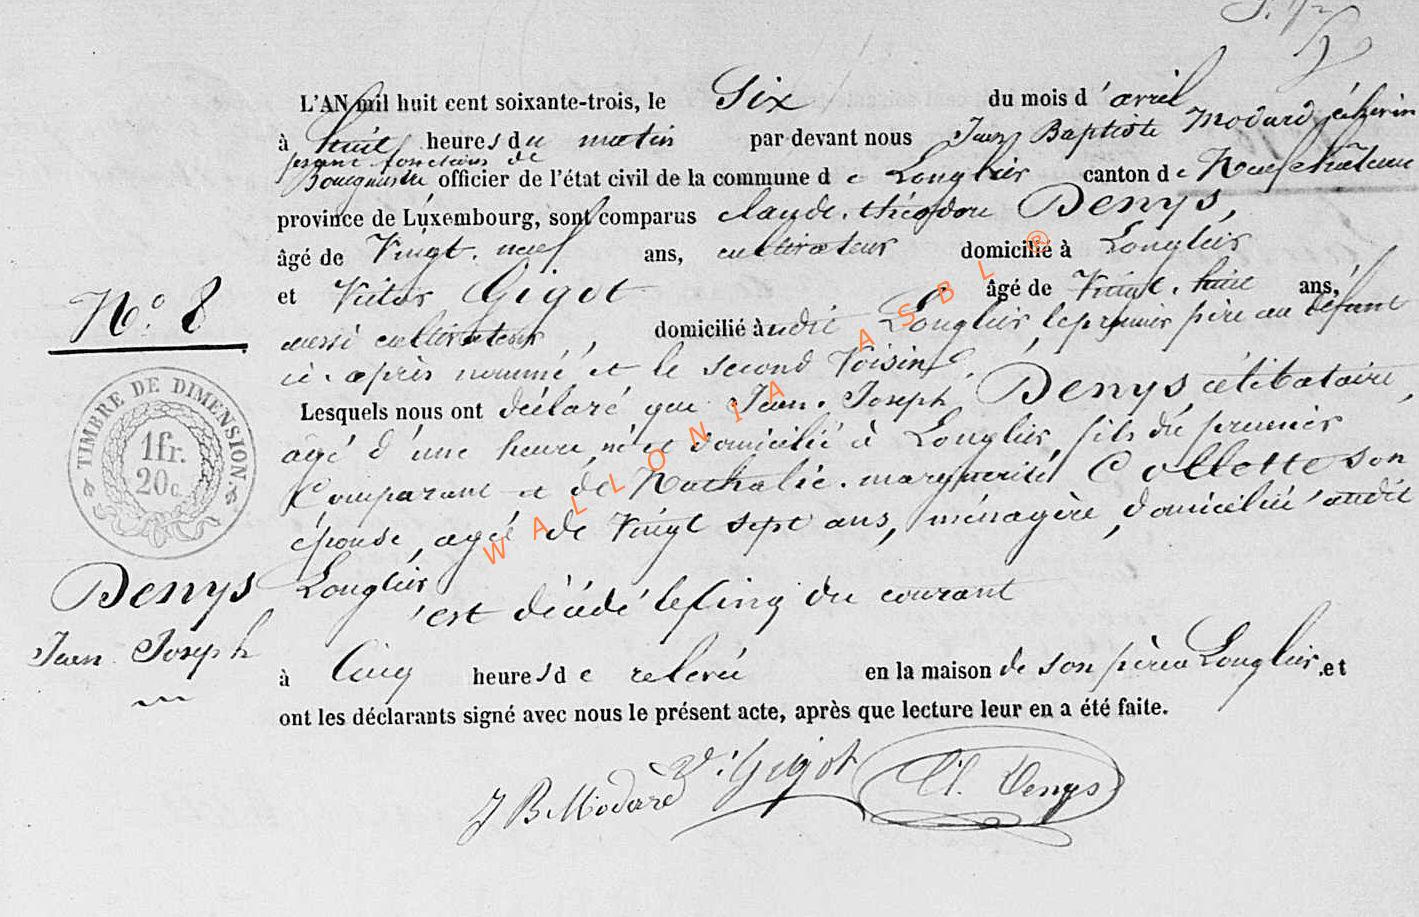 L'AN mil huit cent soixante-trois, le Six du mois d'avril
à huit heures du matin par devant nous Jean Baptiste Modard échevin
fesant fonctions de
Bourgmestre officier de l'état civil de la commune de Longlier canton de Neufchâteau
province de Luxembourg, sont comparus claude. théodore Denys,
âgé de Vingt. neuf ans, cultivateur domicilié à Longlier
N.° 8
et Victor Gigot âgé de Vingt. huit ans,
aussi cultivateur, domicilié audit Longlier, le premier père au défunt
ci. après nommé et le second Voisin,
TIMBRE DE DIMENSION.
1fr.
20c.
Lesquels nous ont déclaré que Jean. Joseph Denys célibataire,
agé d'une heure, né et domicilié à Longlier, fils du premier
Comparant et de Nathalie. marguerite Collette son
épouse, agée de Vingt sept ans, ménagère, domiciliée audit
Longlier
Denys
Jean Joseph
est décédé le cinq du courant
à Cinq heures de relevée en la maison de son père a Longlier, et
ont les déclarants signé avec nous le présent acte, après que lecture leur en a été faite.
J B Modard V. Gigot Cl. Denys
WALLONIA ASBL ®